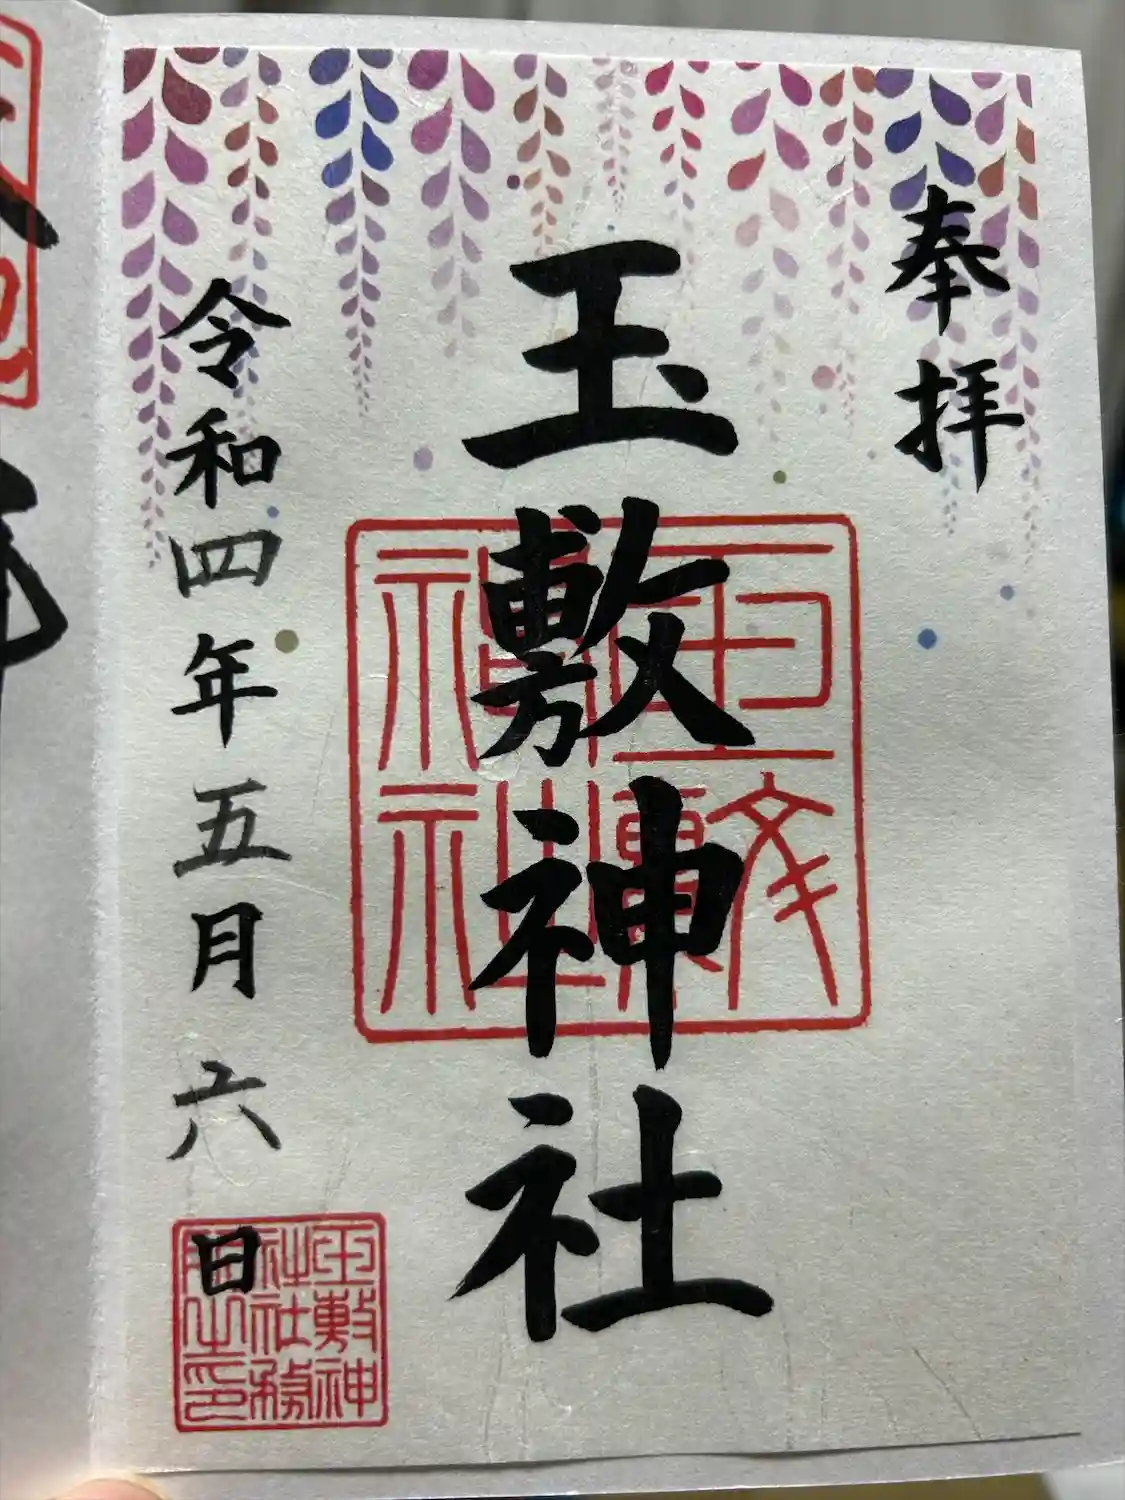 奉拝
玉敷神社
玉敷神社
令和四年五月六日
玉敷神社社務所之印